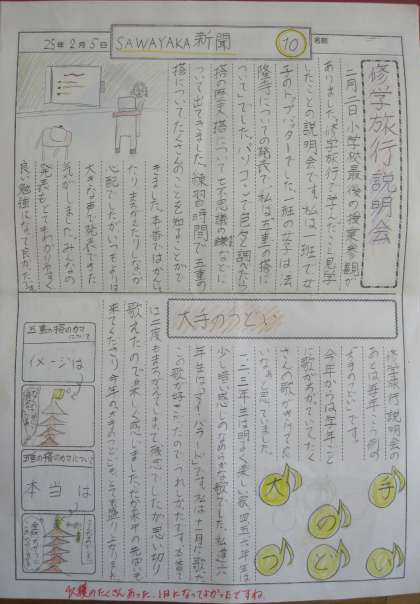 25年2月5日
SAWAYAKA新聞
10
名前
修学旅行説明会
二月二日小学校最後の授業参観が
ありました。修学旅行で学んだこと見学
したことの説明会です。私は、一班で女
子のトップバッターでした。一班の女子は法
隆寺についての発表で、私は五重の塔に
ついてでした。パソコンで五重を調べたら
塔の歴史、塔について七不思議の
ついて出てきました。練習時間で五重の
塔についてたくさんのことを知ることがで
きました。本番ではかん
だりまちがえたりしないか
心配でしたがいつもよりは
大きな声で発表できた
気がしました。みんなの
発表もとてもわかりやすく
良い勉強になって良かったです。
大手のつどい
修学旅行説明会の
あとは毎年こう例の
「大手のつどい」です。
今年からは学年ごと
に歌がちがっていてたく
さんの歌がきけてた
いなぁと思っていました。
一、二、三年生は明るく楽しい歌、四、五年生は
少し暗い感じのなめらかな歌でした。私達六
年生は「マイ・バラード」です。私は十一月に歌った
この歌が好きだったのでうれしかったです。本番で
は二度もまちがえてしまって残念でしたが思い切り
歌えたので楽しく感じました。
来てくださり
五重の塔のカマについて
イメージは
五重の塔のカマについて
本当は
大
手
の
つ
ど
い
収穫のたくさんあった、1日になってよかったですね。